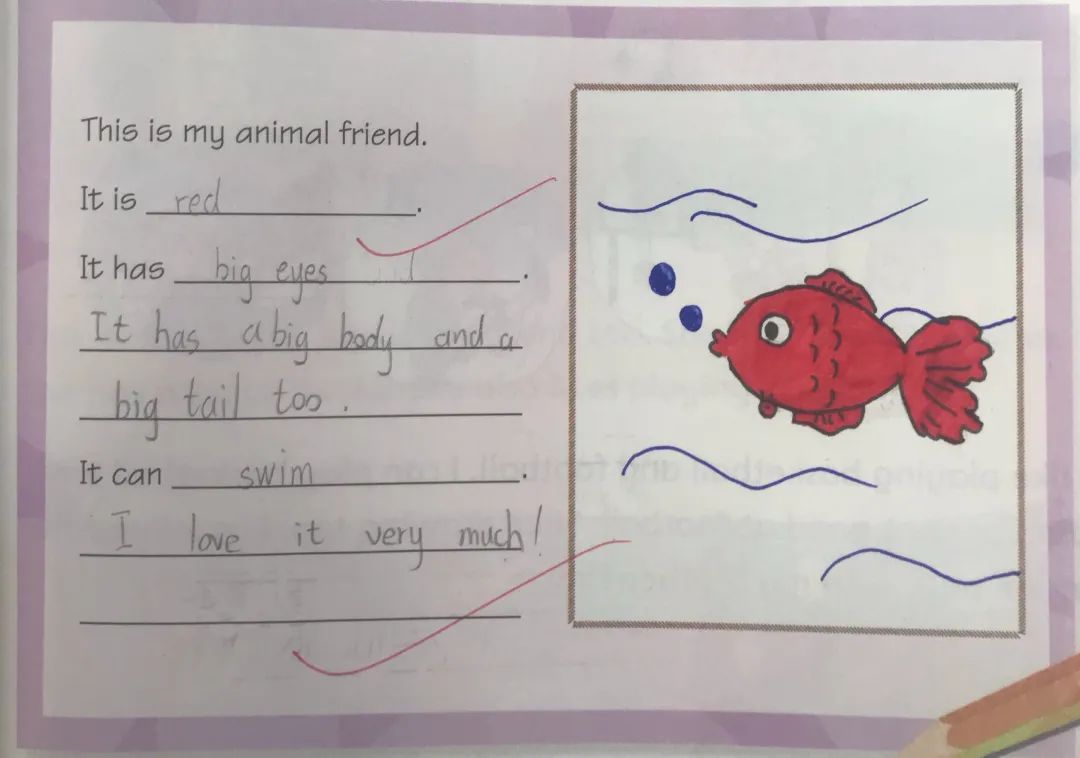 This is my animal friend.
It is red.
It has big eyes.
It has a big body and a
big tail too.
It can swim.
I love it very much!